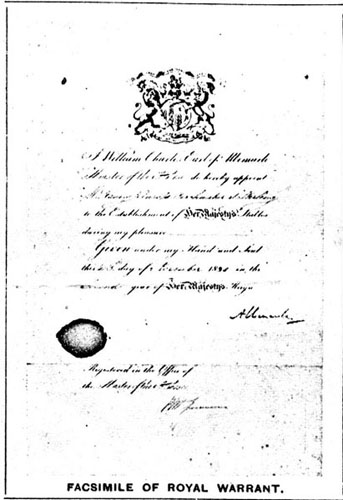 I William Charles Earl of Albemarle
Master of the Horse do hereby appoint
Mr
to the Establishment of Her Majesty's Stables
during my pleasure
Given under my Hand and Seal
this day of December 18 in the
second year of Her Majesty's Reign
Albemarle
Registered in the Office of
the Master of the Horse
FACSIMILE OF ROYAL WARRANT.